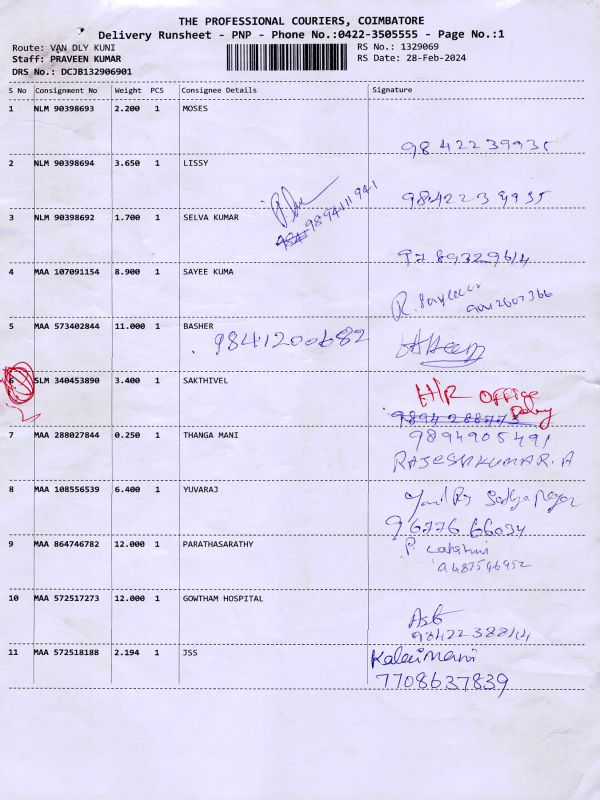 THE PROFESSIONAL COURIERS, COIMBATORE
Delivery Runsheet - PNP - Phone No.:0422-3505555 - Page No.:1
Route: VAN DLY KUNI
RS No.: 1329069
Staff: PRAVEEN KUMAR
RS Date: 28-Feb-2024
DRS No.: DCJB132906901
S No Consignment No Weight PCS Consignee Details Signature
1 NLM 90398693 2.200 1 MOSES
9842239935
2 NLM 90398694 3.650 1 LISSY
9894111941
9842239935
3 NLM 90398692 1.700 1 SELVA KUMAR
9789329614
4 MAA 107091154 8.900 1 SAYEE KUMA
5 MAA 573402844 11.000 1 BASHER
9841200682
6 SLM 340453890 3.400 1 SAKTHIVEL
H/R Office
7 MAA 288027844 0.250 1 THANGA MANI
9894905491
RAJESHKUMAR.A
8 MAA 108556539 6.400 1 YUVARAJ
9677666034
9 MAA 864746782 12.000 1 PARATHASARATHY
P. Lakshmi
9687596952
10 MAA 572517273 12.000 1 GOWTHAM HOSPITAL
11 MAA 572518188 2.194 1 JSS
Kalaimani
7708637839